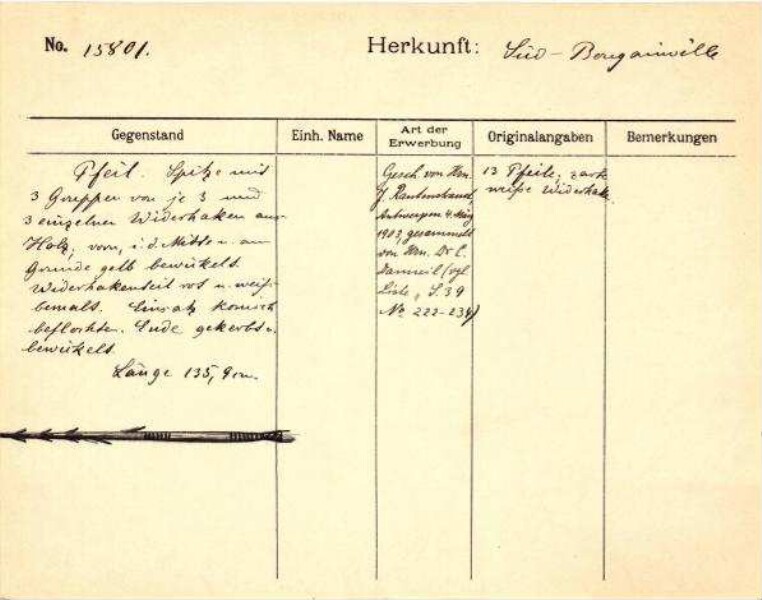 No. 15801.
Herkunft: Süd-Bougainville
Gegenstand
Einh. Name
Art der Erwerbung
Originalangaben
Bemerkungen
Pfeil. Spitze mit
3 Gruppen von je 3 und
3 einzelnen Widerhaken aus
Holz, vorn, i. d. Mitte u. am
Grunde gelb bewickelt.
Widerhakenteil rot u. weiß
bemalt. Einsatz konisch
beflochten. Ende gekerbt u.
bewickelt.
Länge 135,9 cm.
Gesch. von Hrn.
J. Rautenstrauch
Antwerpen 4. März
1903, gesammelt
von Hrn. Dr C.
Danneil (vgl
Liste, S. 39
No 222-234)
13 Pfeile,
weiße Widerhak.